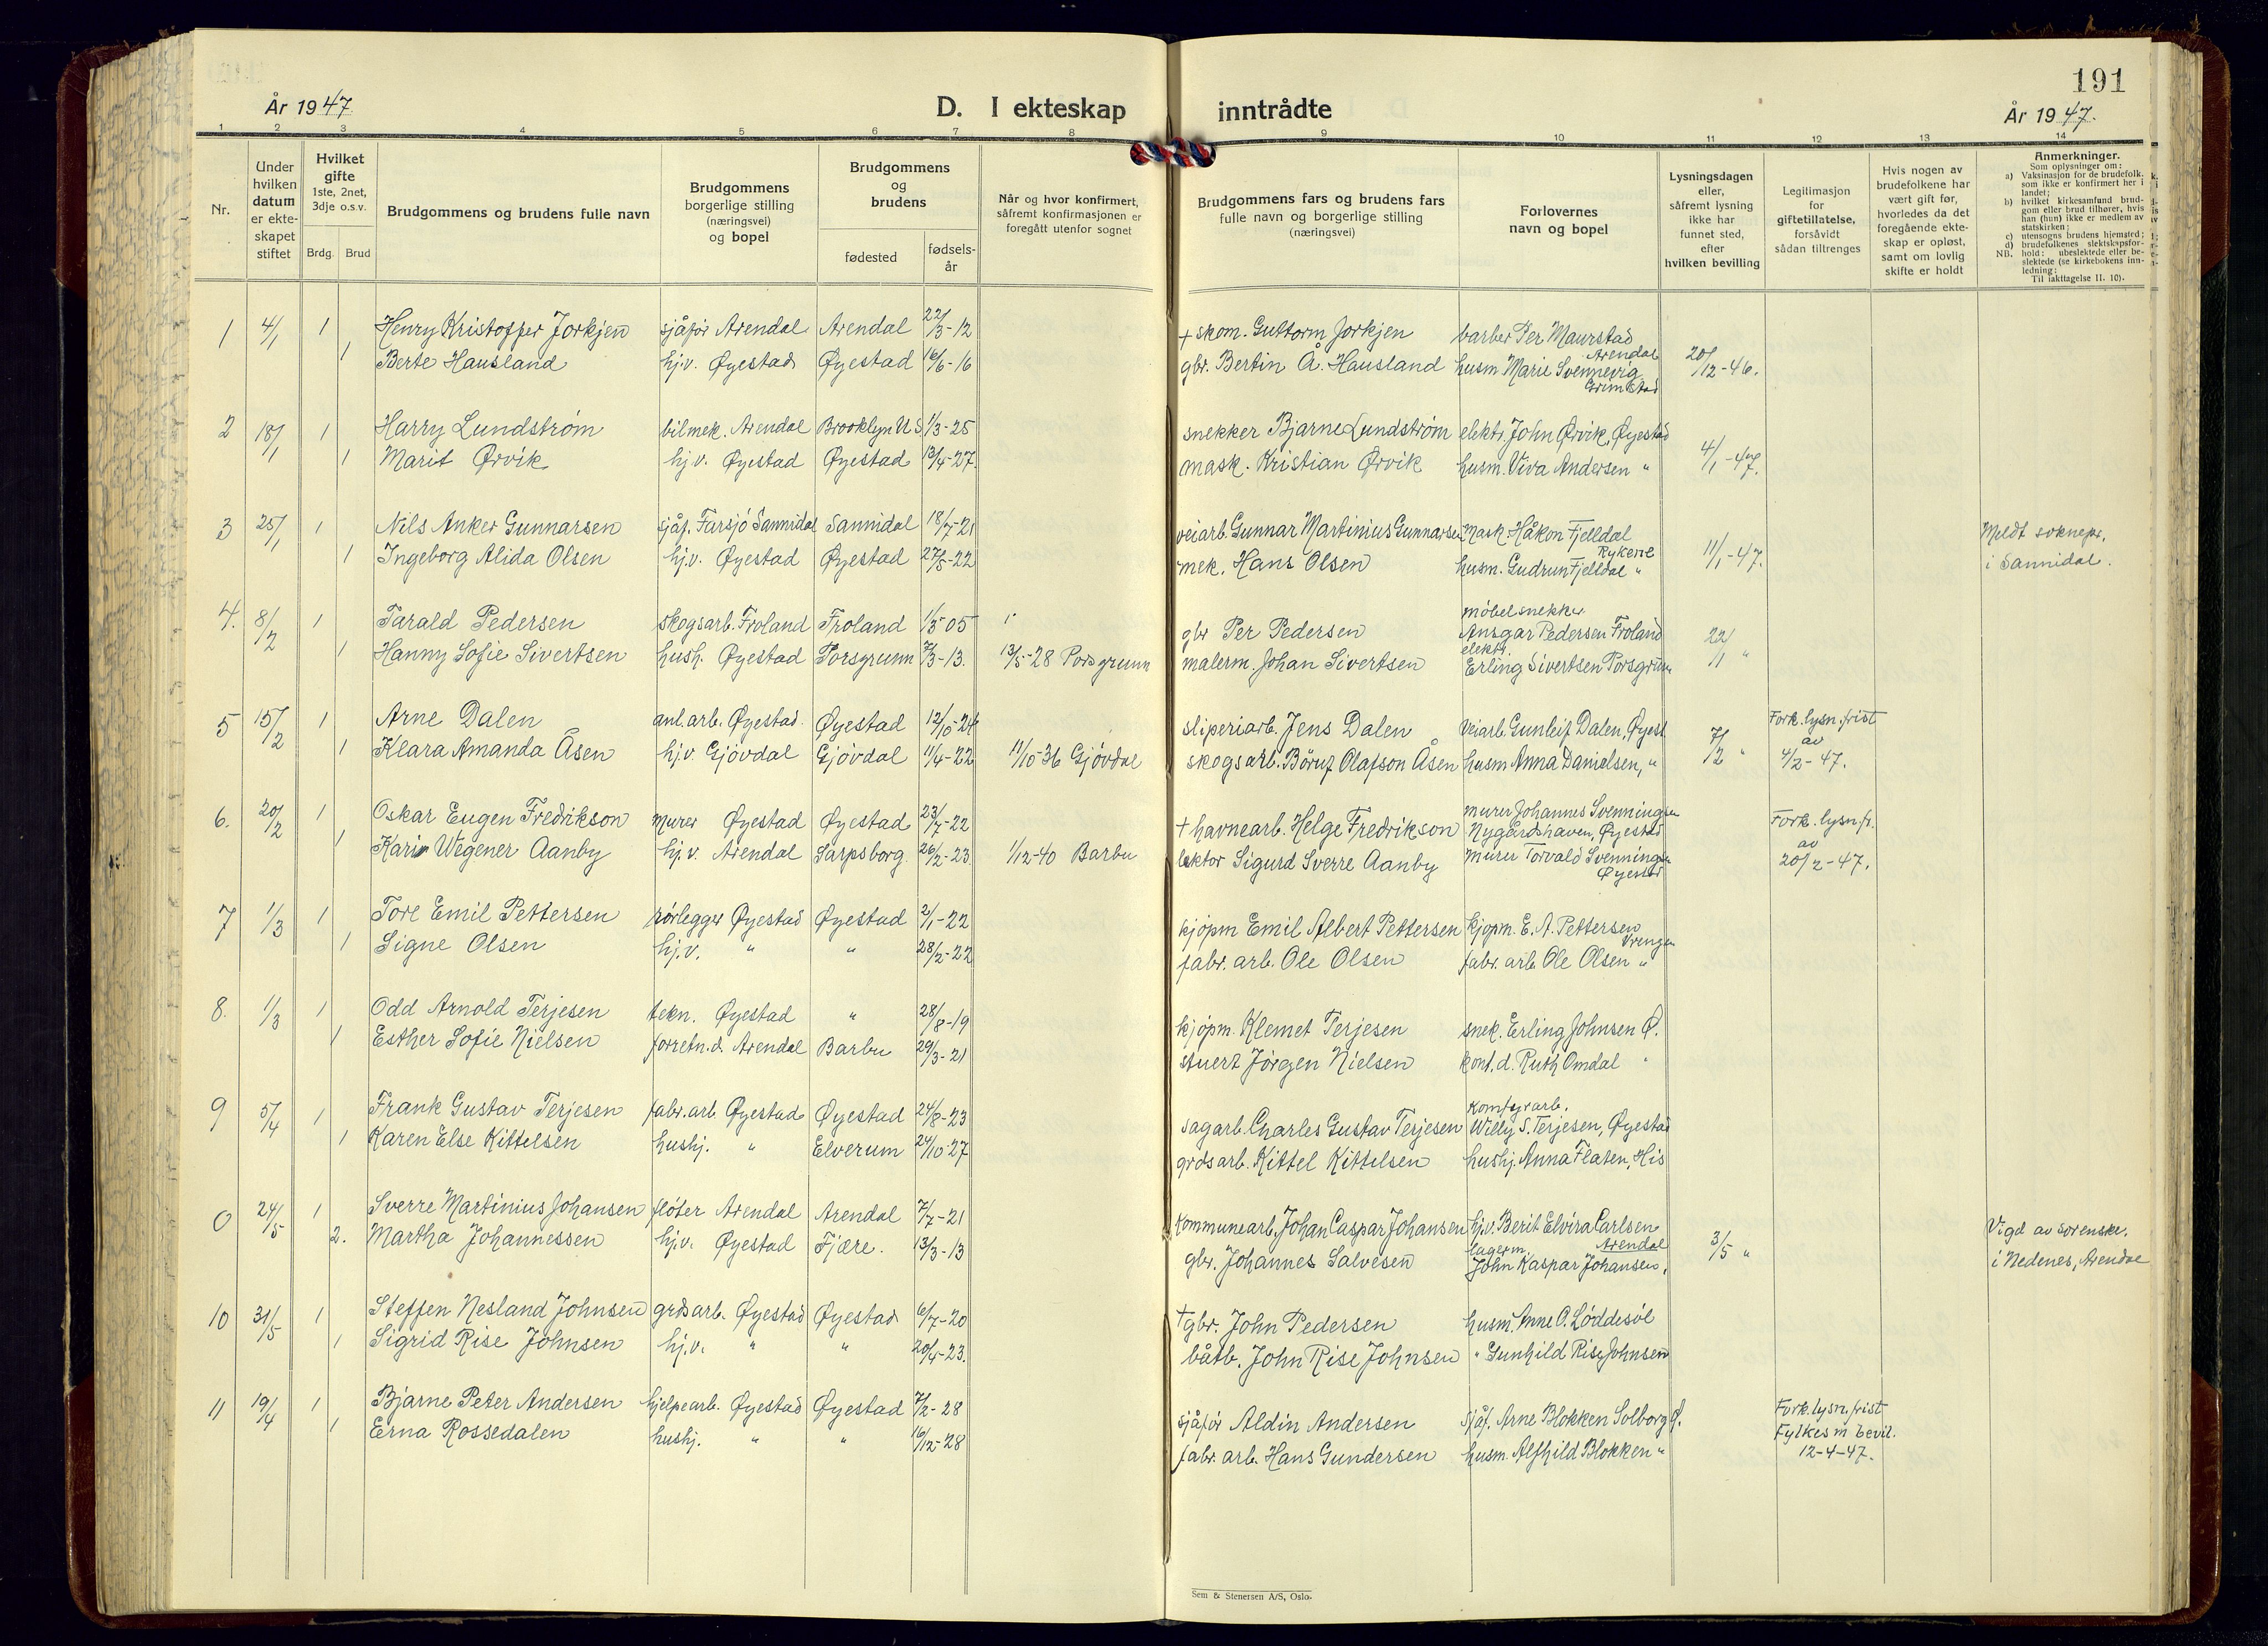 191
År 1947
D. I ekteskap inntrådte
År 1947.
1 2 3 4 5 6 7 8 9 10 11 12 13 14
Nr.
Under hvilken datum er ekteskapet stiftet
Hvilket gifte 1ste, 2net, 3dje o.s.v.
Brdg. Brud
Brudgommens og brudens fulle navn
Brudgommens borgerlige stilling (næringsvei) og bopel
Brudgommens og brudens
fødested
fødsels-år
Når og hvor konfirmert, såfremt konfirmasjonen er foregått utenfor sognet
Brudgommens fars og brudens fars fulle navn og borgerlige stilling (næringsvei)
Forlovernes navn og bopel
Lysningsdagen eller, såfremt lysning ikke har funnet sted, efter hvilken bevilling
Legitimasjon for giftetillatelse, forsåvidt sådan tiltrenges
Hvis nogen av brudefolkene har vært gift før, hvorledes da det foregående ekteskap er opløst, samt om lovlig skifte er holdt
Anmerkninger.
Som oplysninger om:
a) Vaksinasjon for de brudefolk, som ikke er konfirmert her i landet;
b) hvilket kirkesamfund brudgom eller brud tilhører, hvis han (hun) ikke er medlem av statskirken;
c) utensogns brudens hjemsted;
d) brudefolkenes slektskapsforhold: ubeslektede eller beslektede (se kirkebokens innledning:
NB. Til iakttagelse II. 10).
1 4/1 1 Henry Kristoffer Jorkjen sjåfør Arendal Arendal 22/3-12 + skom. Guttorm Jorkjen barber Per Maurstad Arendal
1 Berte Hausland hj.v. Øyestad Øyestad 16/6-16 gbr. Bertin Å. Hausland husm. Marie Svennevig Grimstad 20/12-46.
2 18/1 1 Harry Lundstrøm bilmek. Arendal Brooklyn U S. 1/3-25 snekker Bjarne Lundstrøm elektr. John Ørvik, Øyestad
1 Marit Ørvik hj.v. Øyestad Øyestad 13/4-27. mask. Kristian Ørvik husm. Viva Andersen " 4/1-47.
3 25/1 1 Nils Anker Gunnarsen sjåf. Farsjø Sannidal Sannidal 18/7-21 veiarb. Gunnar Martinius Gunnarsen Mask. Håkon Fjelldal Rykene Meldt soknepr.
1 Ingeborg Alida Olsen hj.v. Øyestad Øyestad 27/5-22 mek. Hans Olsen husm. Gudrun Fjelldal " 11/1-47. i Sannidal.
4. 8/2 1 Tarald Pedersen skogsarb. Froland Froland 1/5 05 gbr Per Pedersen møbelsnekker Ansgar Pedersen Froland
1 Hanny Sofie Sivertsen hush. Øyestad Porsgrunn 7/3-13. 13/5-28 Porsgrunn malerm. Johan Sivertsen elektr. Erling Sivertsen Porsgrunn 22/1 "
5 15/2 1 Arne Dalen anl.arb. Øyestad. Øyestad 12/10-24 sliperiarb. Jens Dalen Veiarb. Gunleif Dalen, Øyest Fork. lysn. frist
1 Klara Amanda Åsen hj.v. Gjøvdal Gjøvdal 11/4-22 11/10-36 Gjøvdal skogsarb. Børuf Olafson Åsen husm Anna Danielsen, " 7/2 " av 4/2-47.
6. 20/2 1 Oskar Eugen Fredrikson murer Øyestad Øyestad 23/7-22 + havnearb. Helge Fredrikson murer Johannes Svenningsen Nygårdshaven, Øyestad Fork. lysn. fr.
1 Karin Wegener Aanby hj.v. Arendal Sarpsborg. 26/2-23. 1/12-40 Barbu lektor Sigurd Sverre Aanby murer Torvald Svenningsen Øyestad av 20/2-47.
7 1/3 1 Tore Emil Pettersen rørlegger Øyestad Øyestad 2/1-22 kjøpm Emil Albert Pettersen kjøpm. E. A. Pettersen Vrengen
1 Signe Olsen hj.v. " " 28/2-22 fabr. arb. Ole Olsen fabr. arb. Ole Olsen "
8. 1/3 1 Odd Arnold Terjesen tekn. Øyestad " 28/8-19 kjøpm. Klemet Terjesen snek. Erling Johnsen Ø.
1 Esther Sofie Nielsen forretn.d. Arendal Barbu 29/3-21 stuert Jørgen Nielsen kont.d. Ruth Omdal "
9 5/4 1 Frank Gustav Terjesen fabr.arb. Øyestad Øyestad 24/8-23 sagarb. Charles Gustav Terjesen Komfyrarb. Willy S. Terjesen, Øyestad
1 Karen Else Kittelsen hushj. " Elverum 24/10-27 grdsarb. Kittel Kittelsen hushj. Anna Flaten, His
0 24/5 1 Sverre Martinius Johansen fløter Arendal Arendal 7/7-21 Kommunearb. Johan Caspar Johansen hj.v. Berit Elvira Carlsen Arendal Vigd av sorenskr.
2. Martha Johannessen hj.v. Øyestad Fjære. 13/3-13 gbr. Johannes Salvesen lagerm. John Kaspar Johansen, 3/5 " i Nedenes, Arendal
10 31/5 1 Steffen Nesland Johnsen grdsarb. Øyestad Øyestad 6/7-20 + gbr. John Pedersen husm. Anne O. Løddesøl
1 Sigrid Rise Johnsen hj.v. " " 20/4-23. båtb. John Rise Johnsen " Gunhild Rise Johnsen
11 19/4 1 Bjarne Peter Andersen hjelpearb. Øyestad Øyestad 7/2-28 sjåfør Aldin Andersen sjåf. Arne Blokken Solborg Ø. Fork. lysn. frist
1 Erna Rossedalen hushj. " " 16/12-28 fabr. arb. Hans Gundersen husm. Alfhild Blokken " Fylkesm bevil. 12-4-47.
Sem & Stenersen A/S, Oslo.